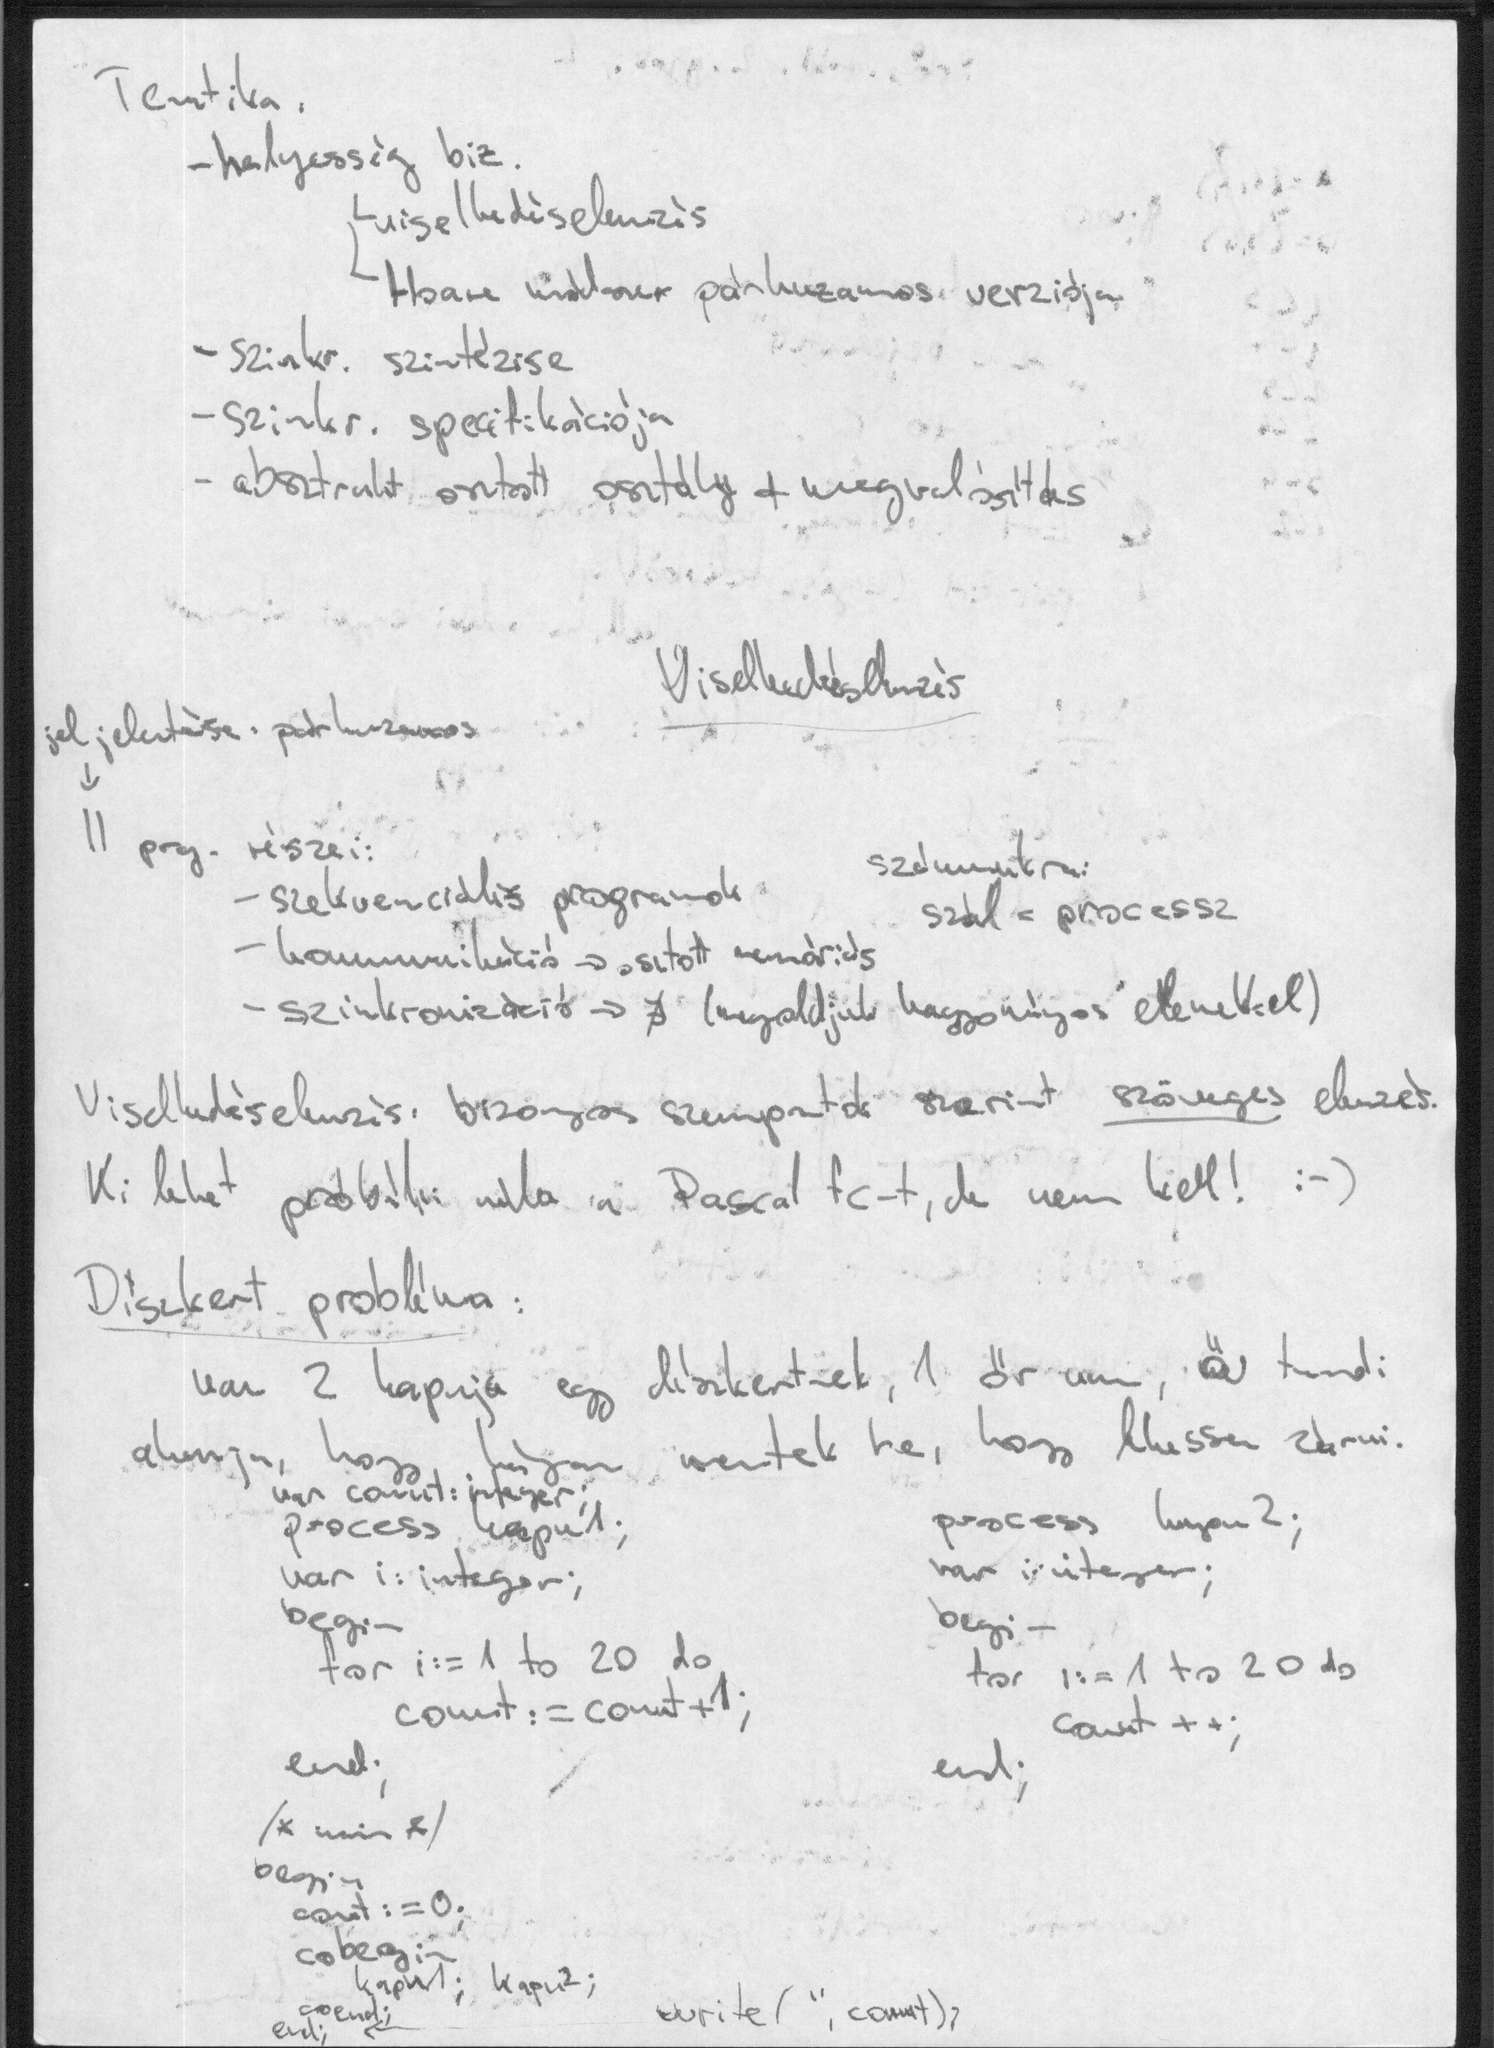 Tematika.
- helyesség biz.
viselkedéselemzés
Hoare módszer párhuzamos verziója
- Szinkr. szintézise
- Szinkr. specifikációja
- absztrakt osztott osztály + megvalósítás
Viselkedéselemzés
jel jelentése: párhuzamos
↓
|| prog. részei:
- szekvenciális programok
számunkra:
szál = processz
- kommunikáció → osztott memóriás
- szinkronizáció → ∄ (megoldjuk hagyományos elemekkel)
Viselkedéselemzés: bizonyos szempontok szerint szöveges elemzés.
Ki lehet próbálni a Pascal fc-t, de nem kell! :-)
Díszkert probléma:
van 2 kapuja egy díszkertnek, 1 őr van, tudni
akarja, hogy hányan mentek be, hogy lehessen zárni.
var count: integer;
process kapu1;
var i: integer;
begin
for i:=1 to 20 do
count:=count+1;
end;
process kapu2;
var i:integer;
begin
for i:=1 to 20 do
count ++;
end;
/* main */
begin
count:=0;
cobegin
kapu1; kapu2;
coend;
end; ← write(", count);